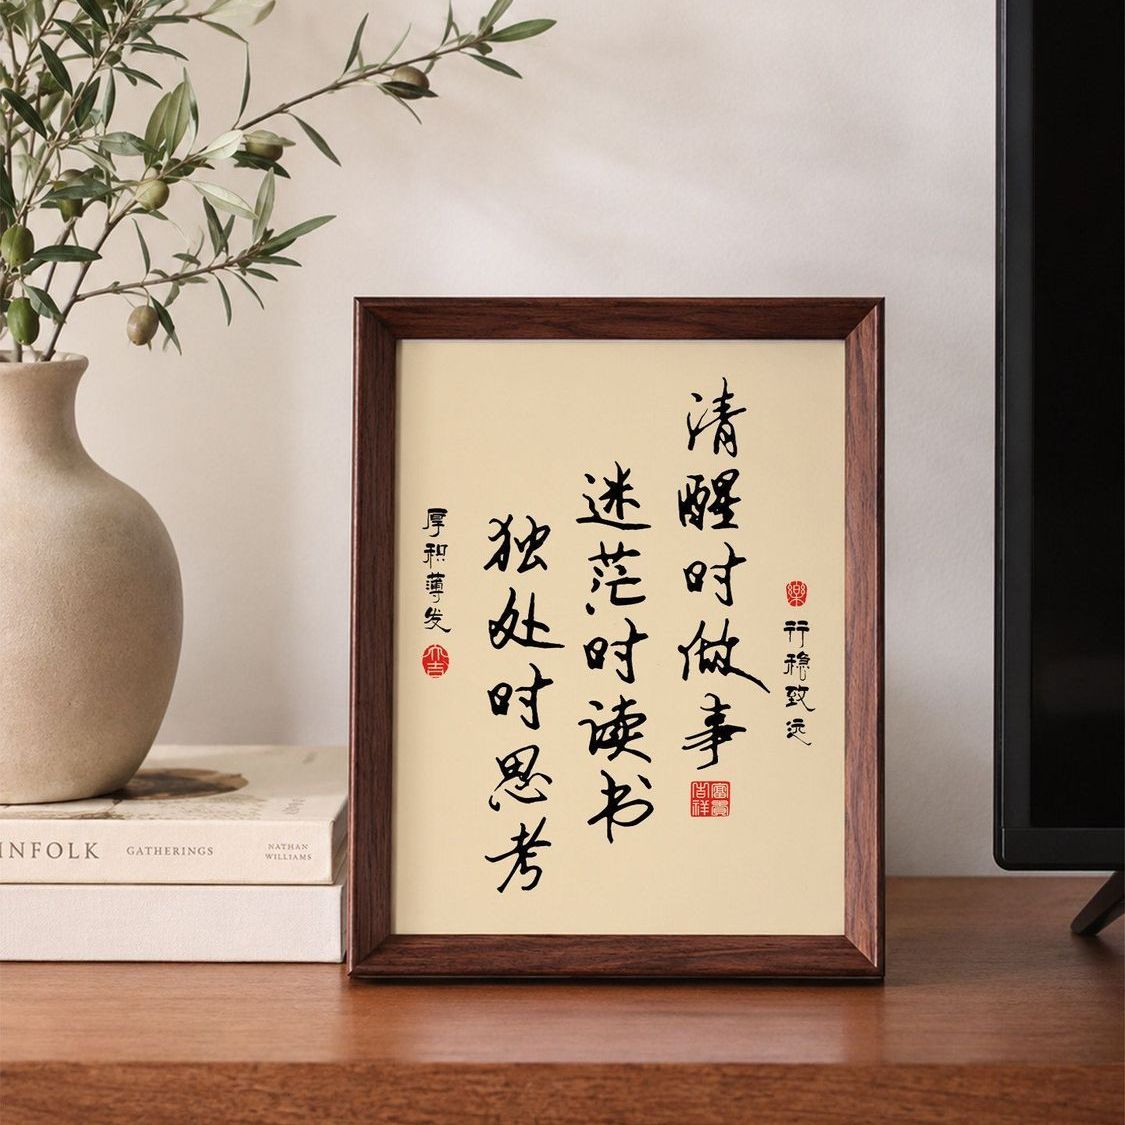 行稳致远
清醒时做事
富贵吉祥
迷茫时读书
独处时思考
厚积薄发
INFOLK GATHERINGS NATHAN WILLIAMS